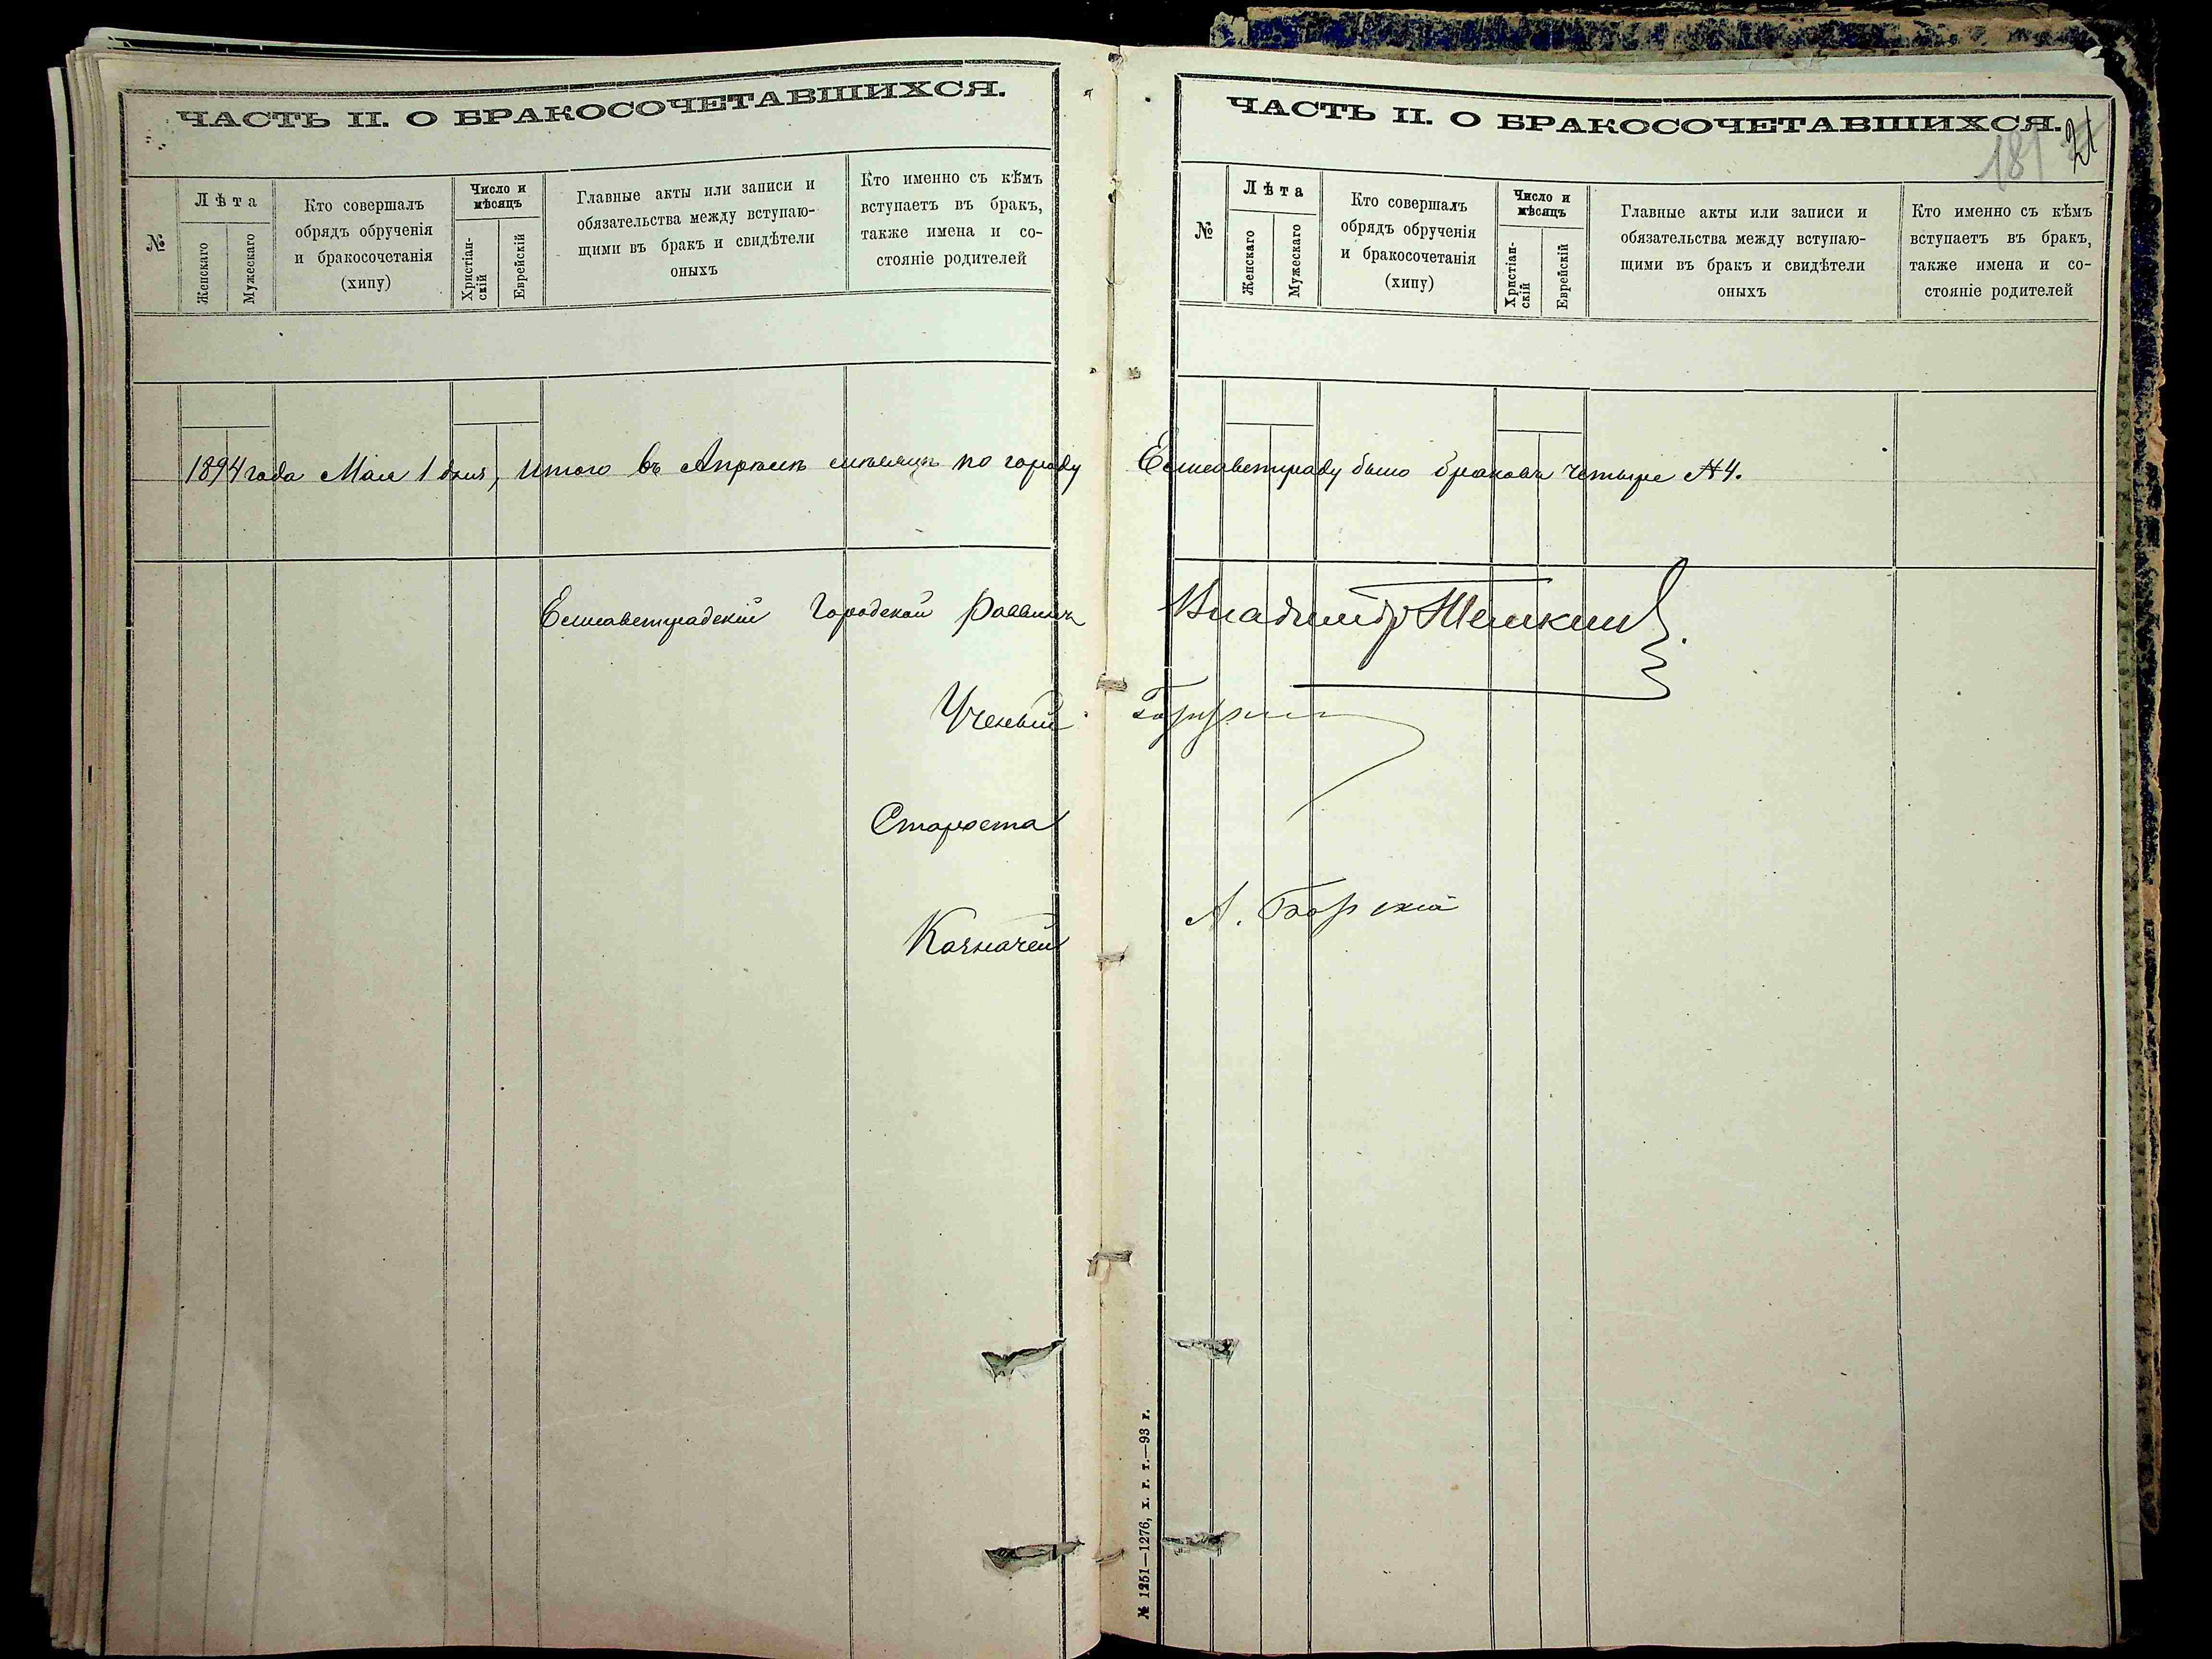 ЧАСТЬ II. О БРАКОСОЧЕТАВШИХСЯ.
№
Лѣта
Женскаго
Мужескаго
Кто совершалъ
обрядъ обрученія
и бракосочетанія
(хипу)
Число и
мѣсяцъ
Христіан-
скій
Еврейскій
Главные акты или записи и
обязательства между вступаю-
щими въ бракъ и свидѣтели
оныхъ
Кто именно съ кѣмъ
вступаетъ въ бракъ,
также имена и со-
стояніе родителей
1894 года Мая 1 дня, итого въ Апрѣлѣ мѣсяцѣ по городу
Елисаветградскій Городской Раввинъ
Ученый
Староста
Казначей
ЧАСТЬ II. О БРАКОСОЧЕТАВШИХСЯ.
181
21
№
Лѣта
Женскаго
Мужескаго
Кто совершалъ
обрядъ обрученія
и бракосочетанія
(хипу)
Число и
мѣсяцъ
Христіан-
скій
Еврейскій
Главные акты или записи и
обязательства между вступаю-
щими въ бракъ и свидѣтели
оныхъ
Кто именно съ кѣмъ
вступаетъ въ бракъ,
также имена и со-
стояніе родителей
Елисаветграду было браковъ четыре №4.
Владиміръ Темкинъ.
А. Борскій
№ 1251—1276, х. г. т.—93 г.